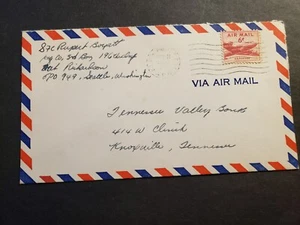 Sfc Rupert
Co, 3rd Bn, 196th
Fort Richardson
APO 949, Seattle, Washington
AIR MAIL
6¢
VIA AIR MAIL
Tennessee Valley Sons
414 W Clinch
Knoxville, Tennessee